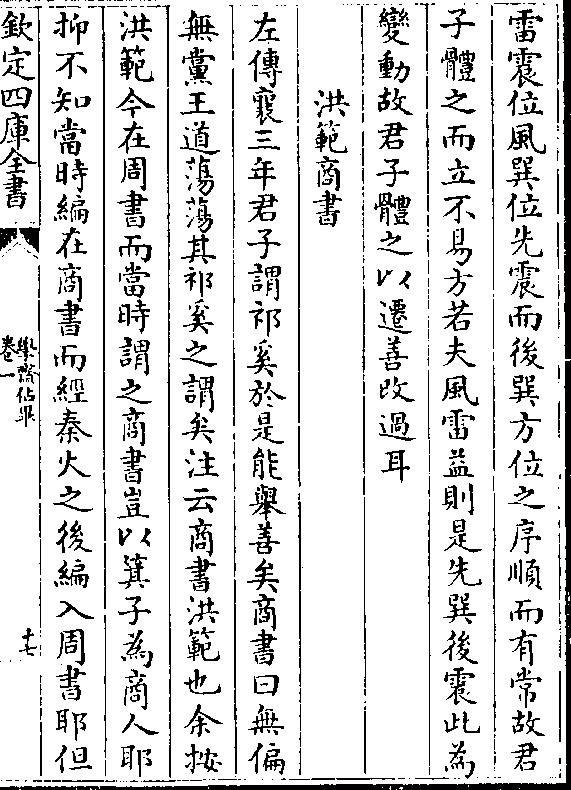 雷震位風巽位先震而後巽方位之序順而有常故君
子體之而立不易方若夫風雷益則是先巽後震此為
變動故君子體之以遷善改過耳
洪範商書
左傳襄三年君子謂祁奚於是能舉善矣商書曰無偏
無黨王道蕩蕩其祁奚之謂矣注云商書洪範也余按
洪範今在周書而當時謂之商書豈以箕子為商人耶
抑不知當時編在商書而經秦火之後編入周書耶但
欽定四庫全書
學齋佔畢
卷一
十七